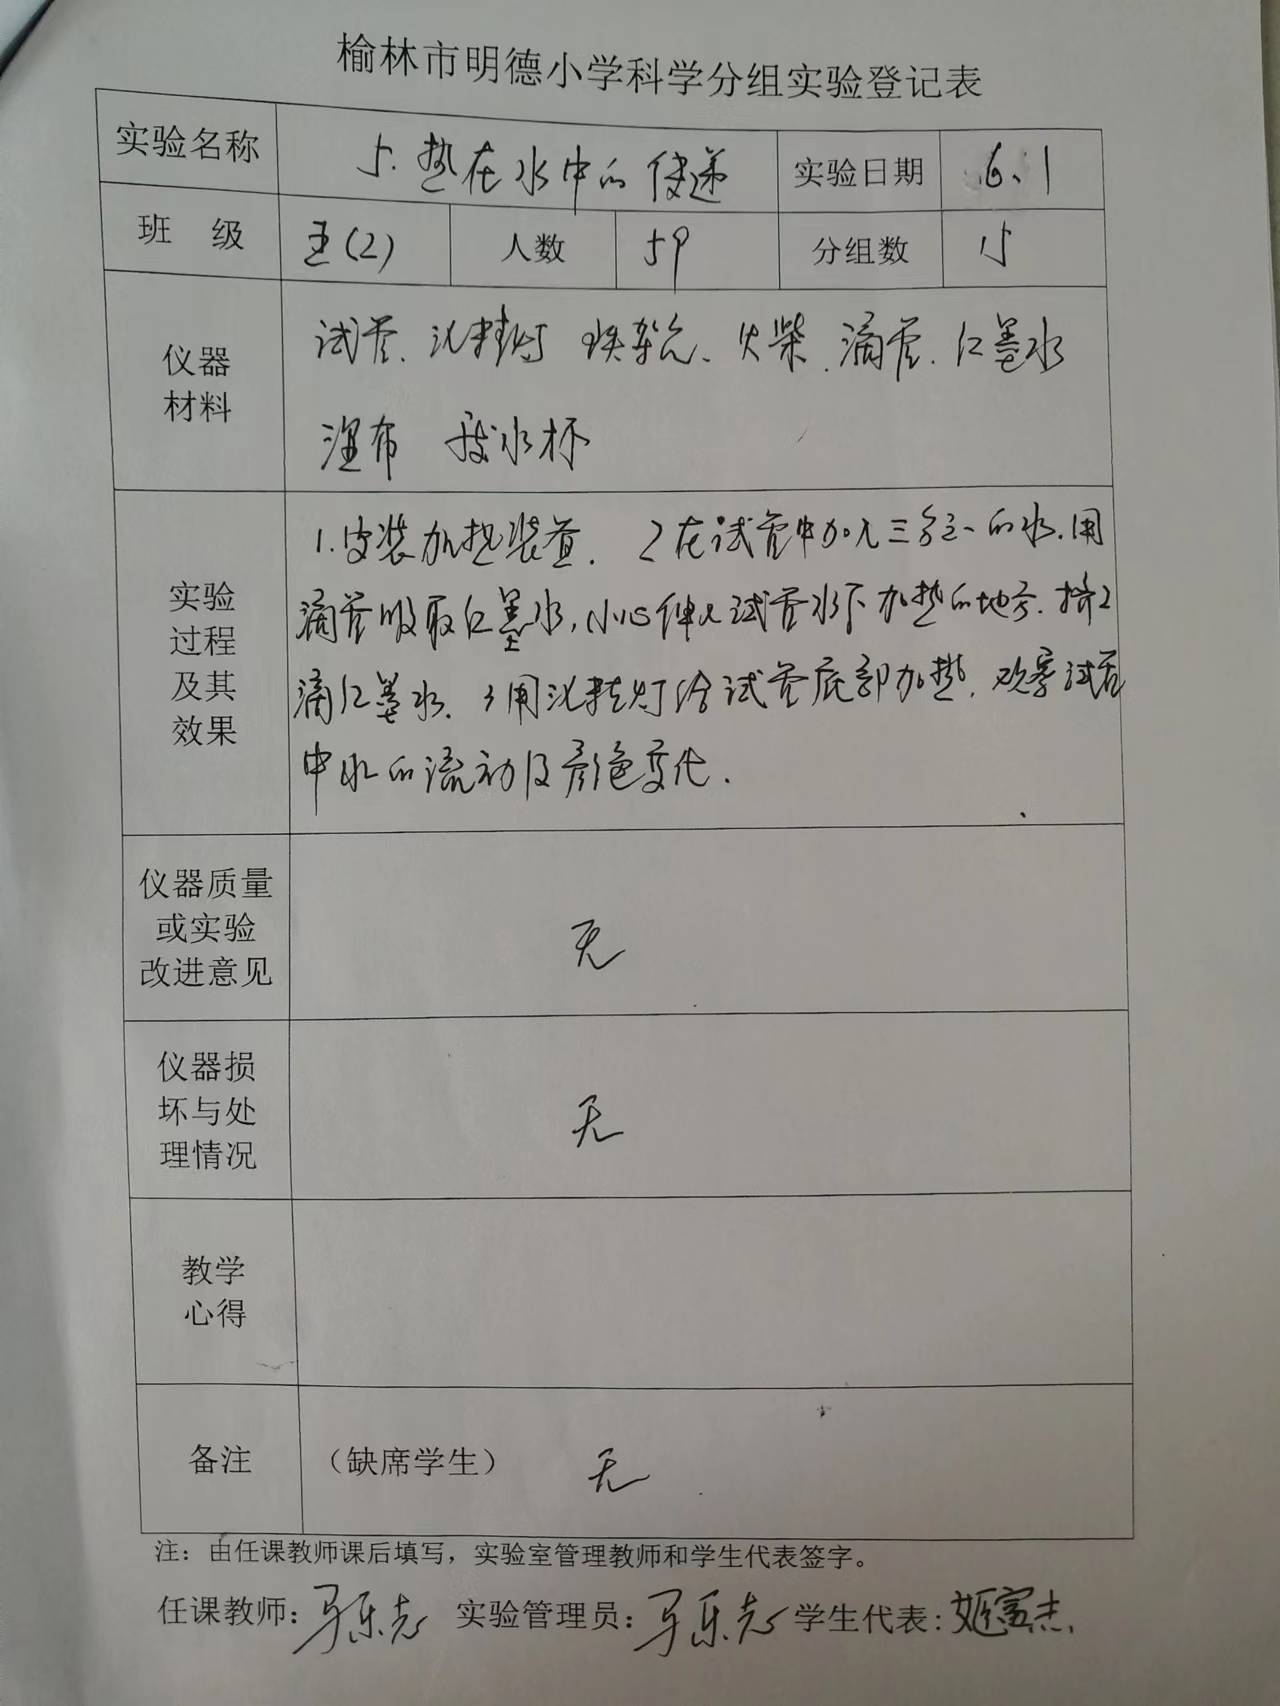 榆林市明德小学科学分组实验登记表
实验名称 5.热在水中的传递 实验日期 6.1
班 级 五(2) 人数 59 分组数 15
仪器材料 试管、酒精灯 铁架台、火柴、滴管、红墨水
湿布 废水杯
实验过程及其效果 1.安装加热装置. 2在试管中加入三分之一的水.用
滴管吸取红墨水,小心伸入试管水下加热的地方.挤2
滴红墨水. 3用酒精灯给试管底部加热,观察试管
中水的流动及颜色变化.
仪器质量或实验改进意见 无
仪器损坏与处理情况 无
教学心得
备注 (缺席学生) 无
注:由任课教师课后填写,实验室管理教师和学生代表签字。
任课教师: 实验管理员: 学生代表: